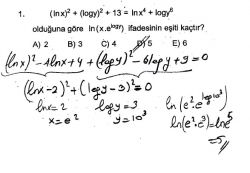 1. (lnx)² + (logy)² + 13 = lnx⁴ + logy⁶
olduğuna göre ln(x.e^logy) ifadesinin eşiti kaçtır?
A) 2 B) 3 C) 4 D) 5 E) 6
(lnx)² - 4lnx + 4 + (logy)² - 6logy + 9 = 0
(lnx-2)² + (logy-3)² = 0
lnx = 2 logy = 3 ln(e².e^log10³)
x = e² y = 10³ ln(e².e³) = lne⁵
= 5